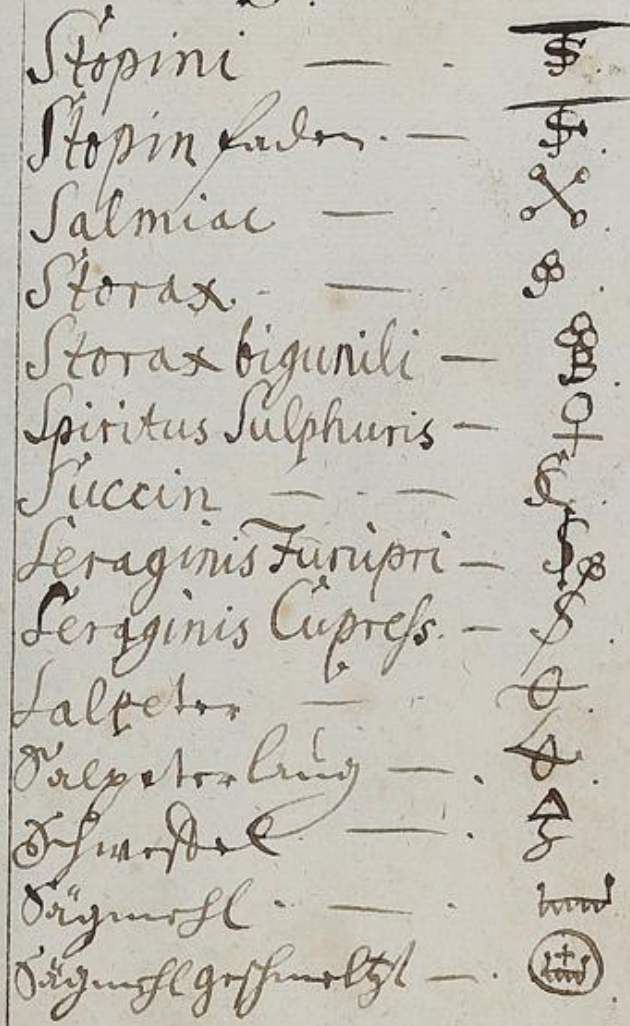 Stopini — .
Stopin faden. —
Salmiac —
Storax. —
Storax bigunili —
Spiritus Sulphuris —
Succin — . —
Seraginis Furupri —
Seraginis Cupress. —
Salpeter —
Salpeterlaug — .
Schweffel — .
Sägmehl . — .
Sägmehl geschmeltzt — .